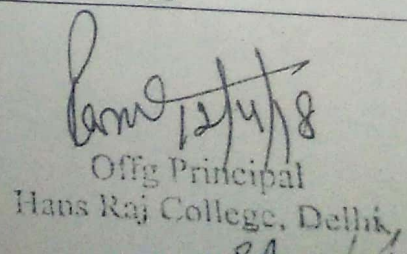 12/4/18
Offg Principal
Hans Raj College, Delhi